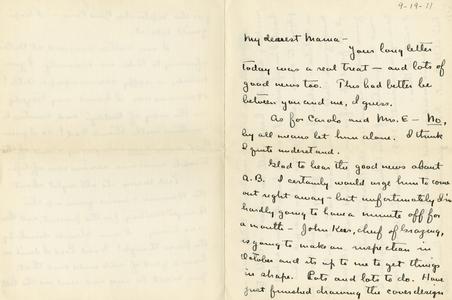 9-19-11
My dearest Mama-
Your long letter
today was a real treat - and lots of
good news too. This had better be
between you and me, I guess.
As for Carols and Mrs. E - No,
by all means let him alone. I think
I quite understand.
Glad to hear the good news about
A.B. I certainly would urge him to come
out right away - but unfortunately I'm
hardly going to have a minute off for
a month - John Kerr, chief of grazing,
is going to make an inspection in
October and its up to me to get things
in shape. Lots and lots to do. Have
just finished drawing the cover design